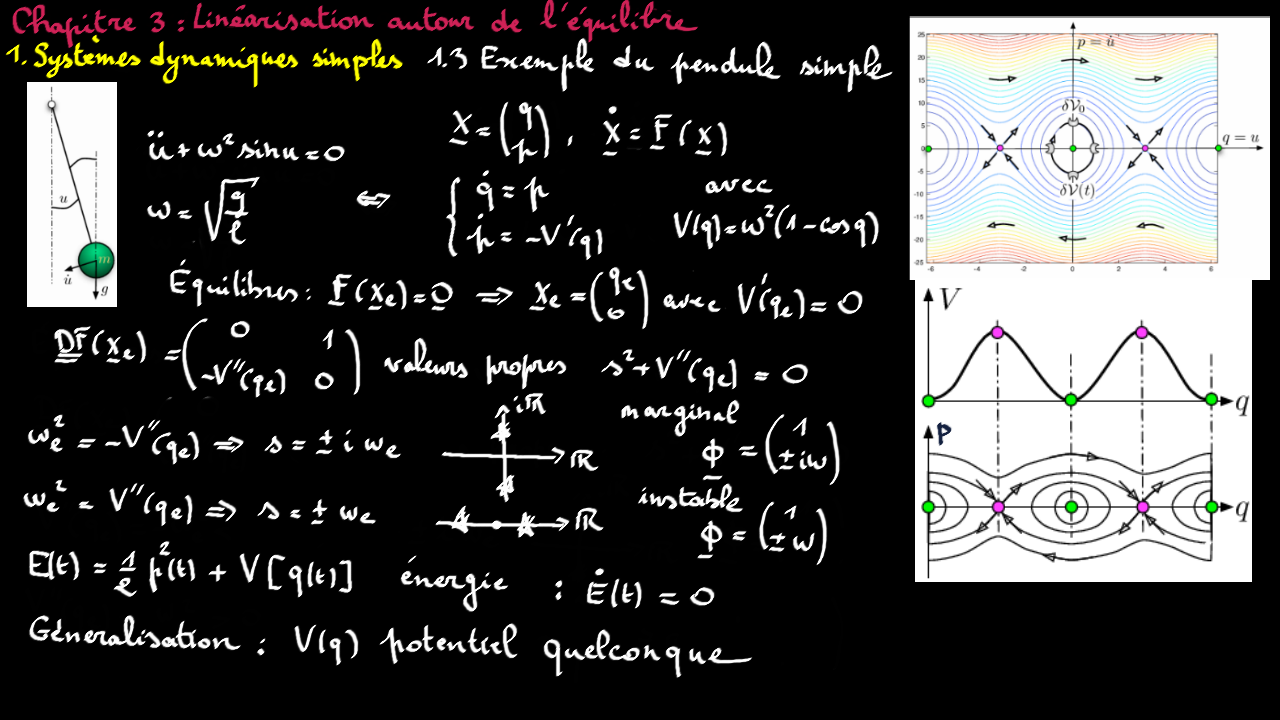 Chapitre 3 : Linéarisation autour de l'équilibre
1. Systèmes dynamiques simples 1.3 Exemple du pendule simple
ü + ω² sin u = 0
ω = √(g/ℓ)
⇔
X = (q p), Ẋ = F(X)
{ q̇ = p
ṗ = -V'(q)
avec
V(q) = ω²(1 - cos q)
Équilibres : F(Xe) = 0 ⇒ Xe = (qe 0) avec V'(qe) = 0
DF(Xe) = (0 1 -V''(qe) 0) valeurs propres s² + V''(qe) = 0
ωe² = -V''(qe) ⇒ s = ± i ωe
iℝ
ℝ
marginal
Φ = (1 ±iω)
ωe² = V''(qe) ⇒ s = ± ωe
ℝ
instable
Φ = (1 ±ω)
E(t) = 1/2 p²(t) + V[q(t)] énergie : Ė(t) = 0
Géneralisation : V(q) potentiel quelconque
u
m
u̇
g
p = u̇
q = u
δV₀
δV(t)
25
20
15
10
5
0
-5
-10
-15
-20
-25
-6 -4 -2 0 2 4 6
V
q
p
q